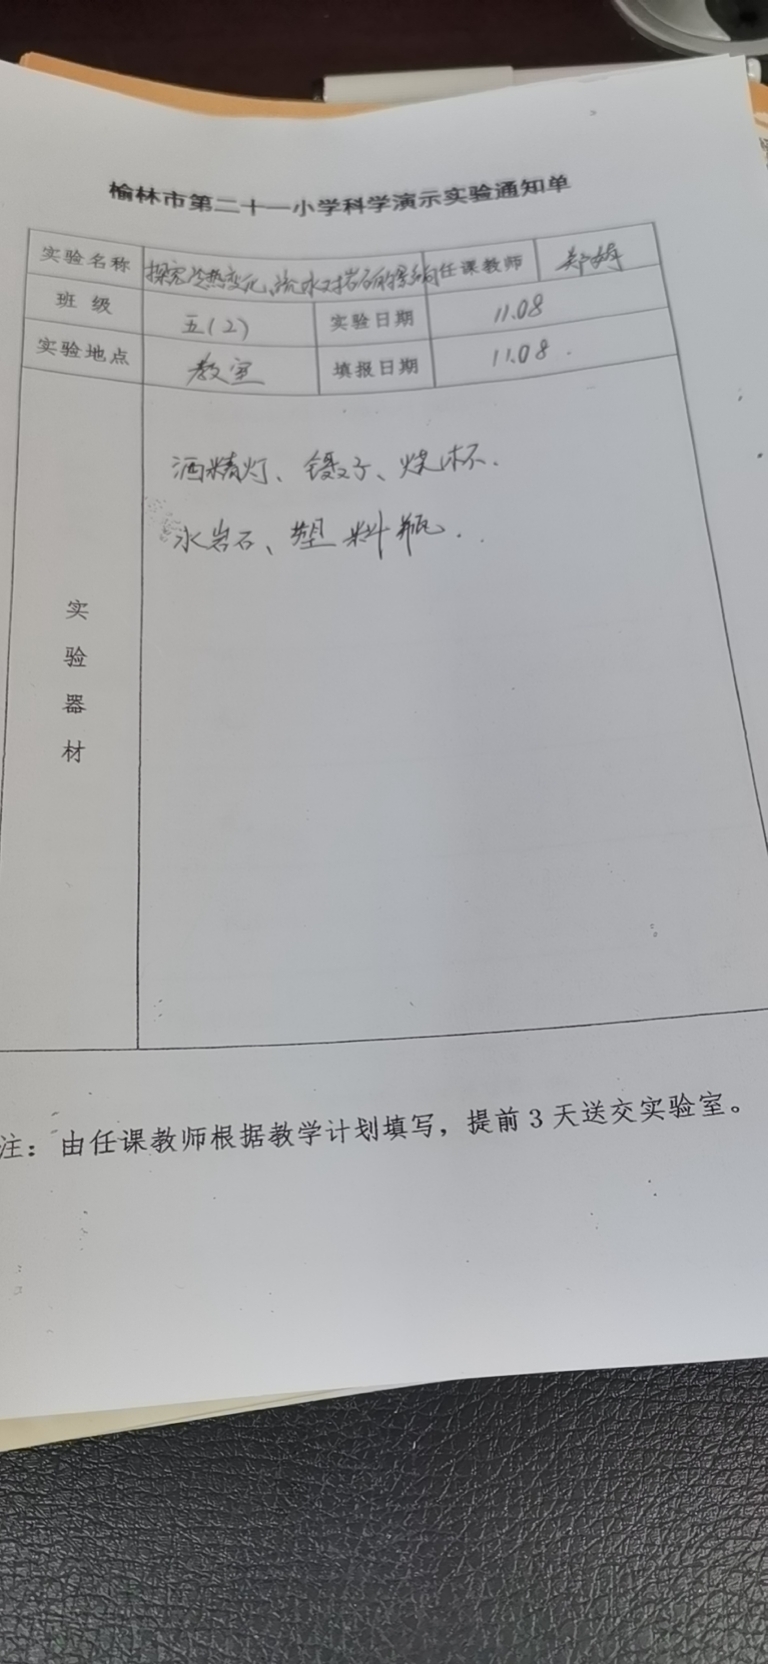 榆林市第二十一小学科学演示实验通知单
实验名称 探究冷热变化、流水对岩石的影响 任课教师 郑婷
班 级 五(2) 实验日期 11.08
实验地点 教室 填报日期 11.08.
酒精灯、镊子、烧杯.
水岩石、塑料瓶..
实
验
器
材
注：由任课教师根据教学计划填写，提前3天送交实验室。